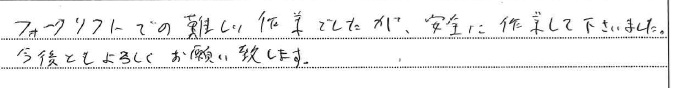 フォークリフトでの難しい作業でしたが、安全に作業して下さいました。
今後ともよろしくお願い致します。